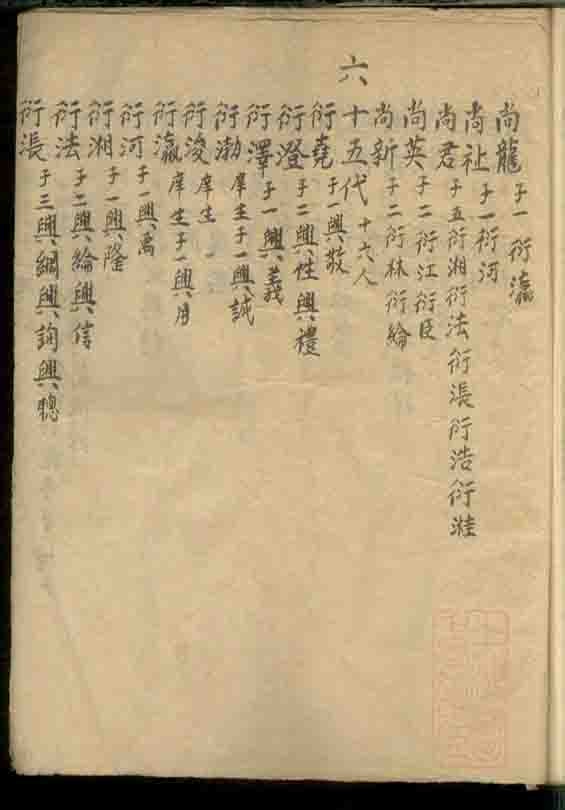 尚龍子一衍瀛
尚祉子一衍河
尚君子五衍湘衍法衍漲衍浩衍
尚英子二衍江衍臣
尚新子二衍林衍綸
六十五代十六人
衍堯子一興敬
衍澄子二興性興禮
衍澤子一興義
衍渤庠生子一興誠
衍浚庠生
衍瀛庠生子一興月
衍河子一興萬
衍湘子一興隆
衍法子二興綸興信
衍漲子三興綱興詢興聰